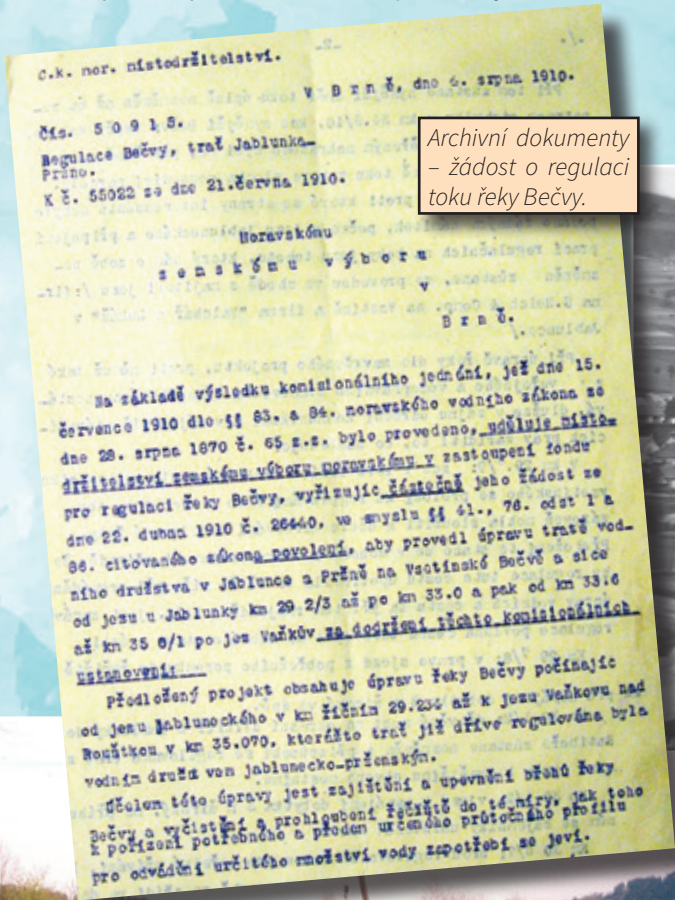 C.k. mor. místodržitelství.
V Brně, dne 6. srpna 1910.
Čís. 50918.
Regulace Bečvy, trať Jablunka-
Pržno.
K č. 55022 ze dne 21.června 1910.
Moravskému
zemskému výboru
v
Brně.
Archivní dokumenty
– žádost o regulaci
toku řeky Bečvy.
Na základě výsledku komisionálního jednání, jež dne 15.
července 1910 dle §§ 83. a 84. moravského vodního zákona ze
dne 28. srpna 1870 č. 65 z.z. bylo provedeno, uděluje místo-
držitelství zemskému výboru moravskému v zastoupení fondu
pro regulaci řeky Bečvy, vyřizujíc částečně jeho žádost ze
dne 22. dubna 1910 č. 26440, ve smyslu §§ 41., 76. odst 1 a
86. citovaného zákona povolení, aby provedl úpravu tratě vod-
ního družstva v Jablunce a Pržně na Vsetínské Bečvě a sice
od jezu u Jablunky km 29 2/3 až po km 33.0 a pak od km 33.6
až km 35 0/1 po jez Vaňkův za dodržení těchto komisionálních
ustanovení:
Předložený projekt obsahuje úpravu řeky Bečvy počínajíc
od jezu Jabluneckého v km říčním 29.234 až k jezu Vaňkovu nad
Rouštkou v km 35.070. kterážto trať již dříve regulována byla
vodním družstvem jablunecko-prženským.
Účelem této úpravy jest zajištění a upevnění břehů řeky
Bečvy a vyčistění a prohloubení řečiště do té míry, jak toho
k pořízení potřebného a předem určeného průtočného profilu
pro odvádění určitého množství vody zapotřebí se jeví.